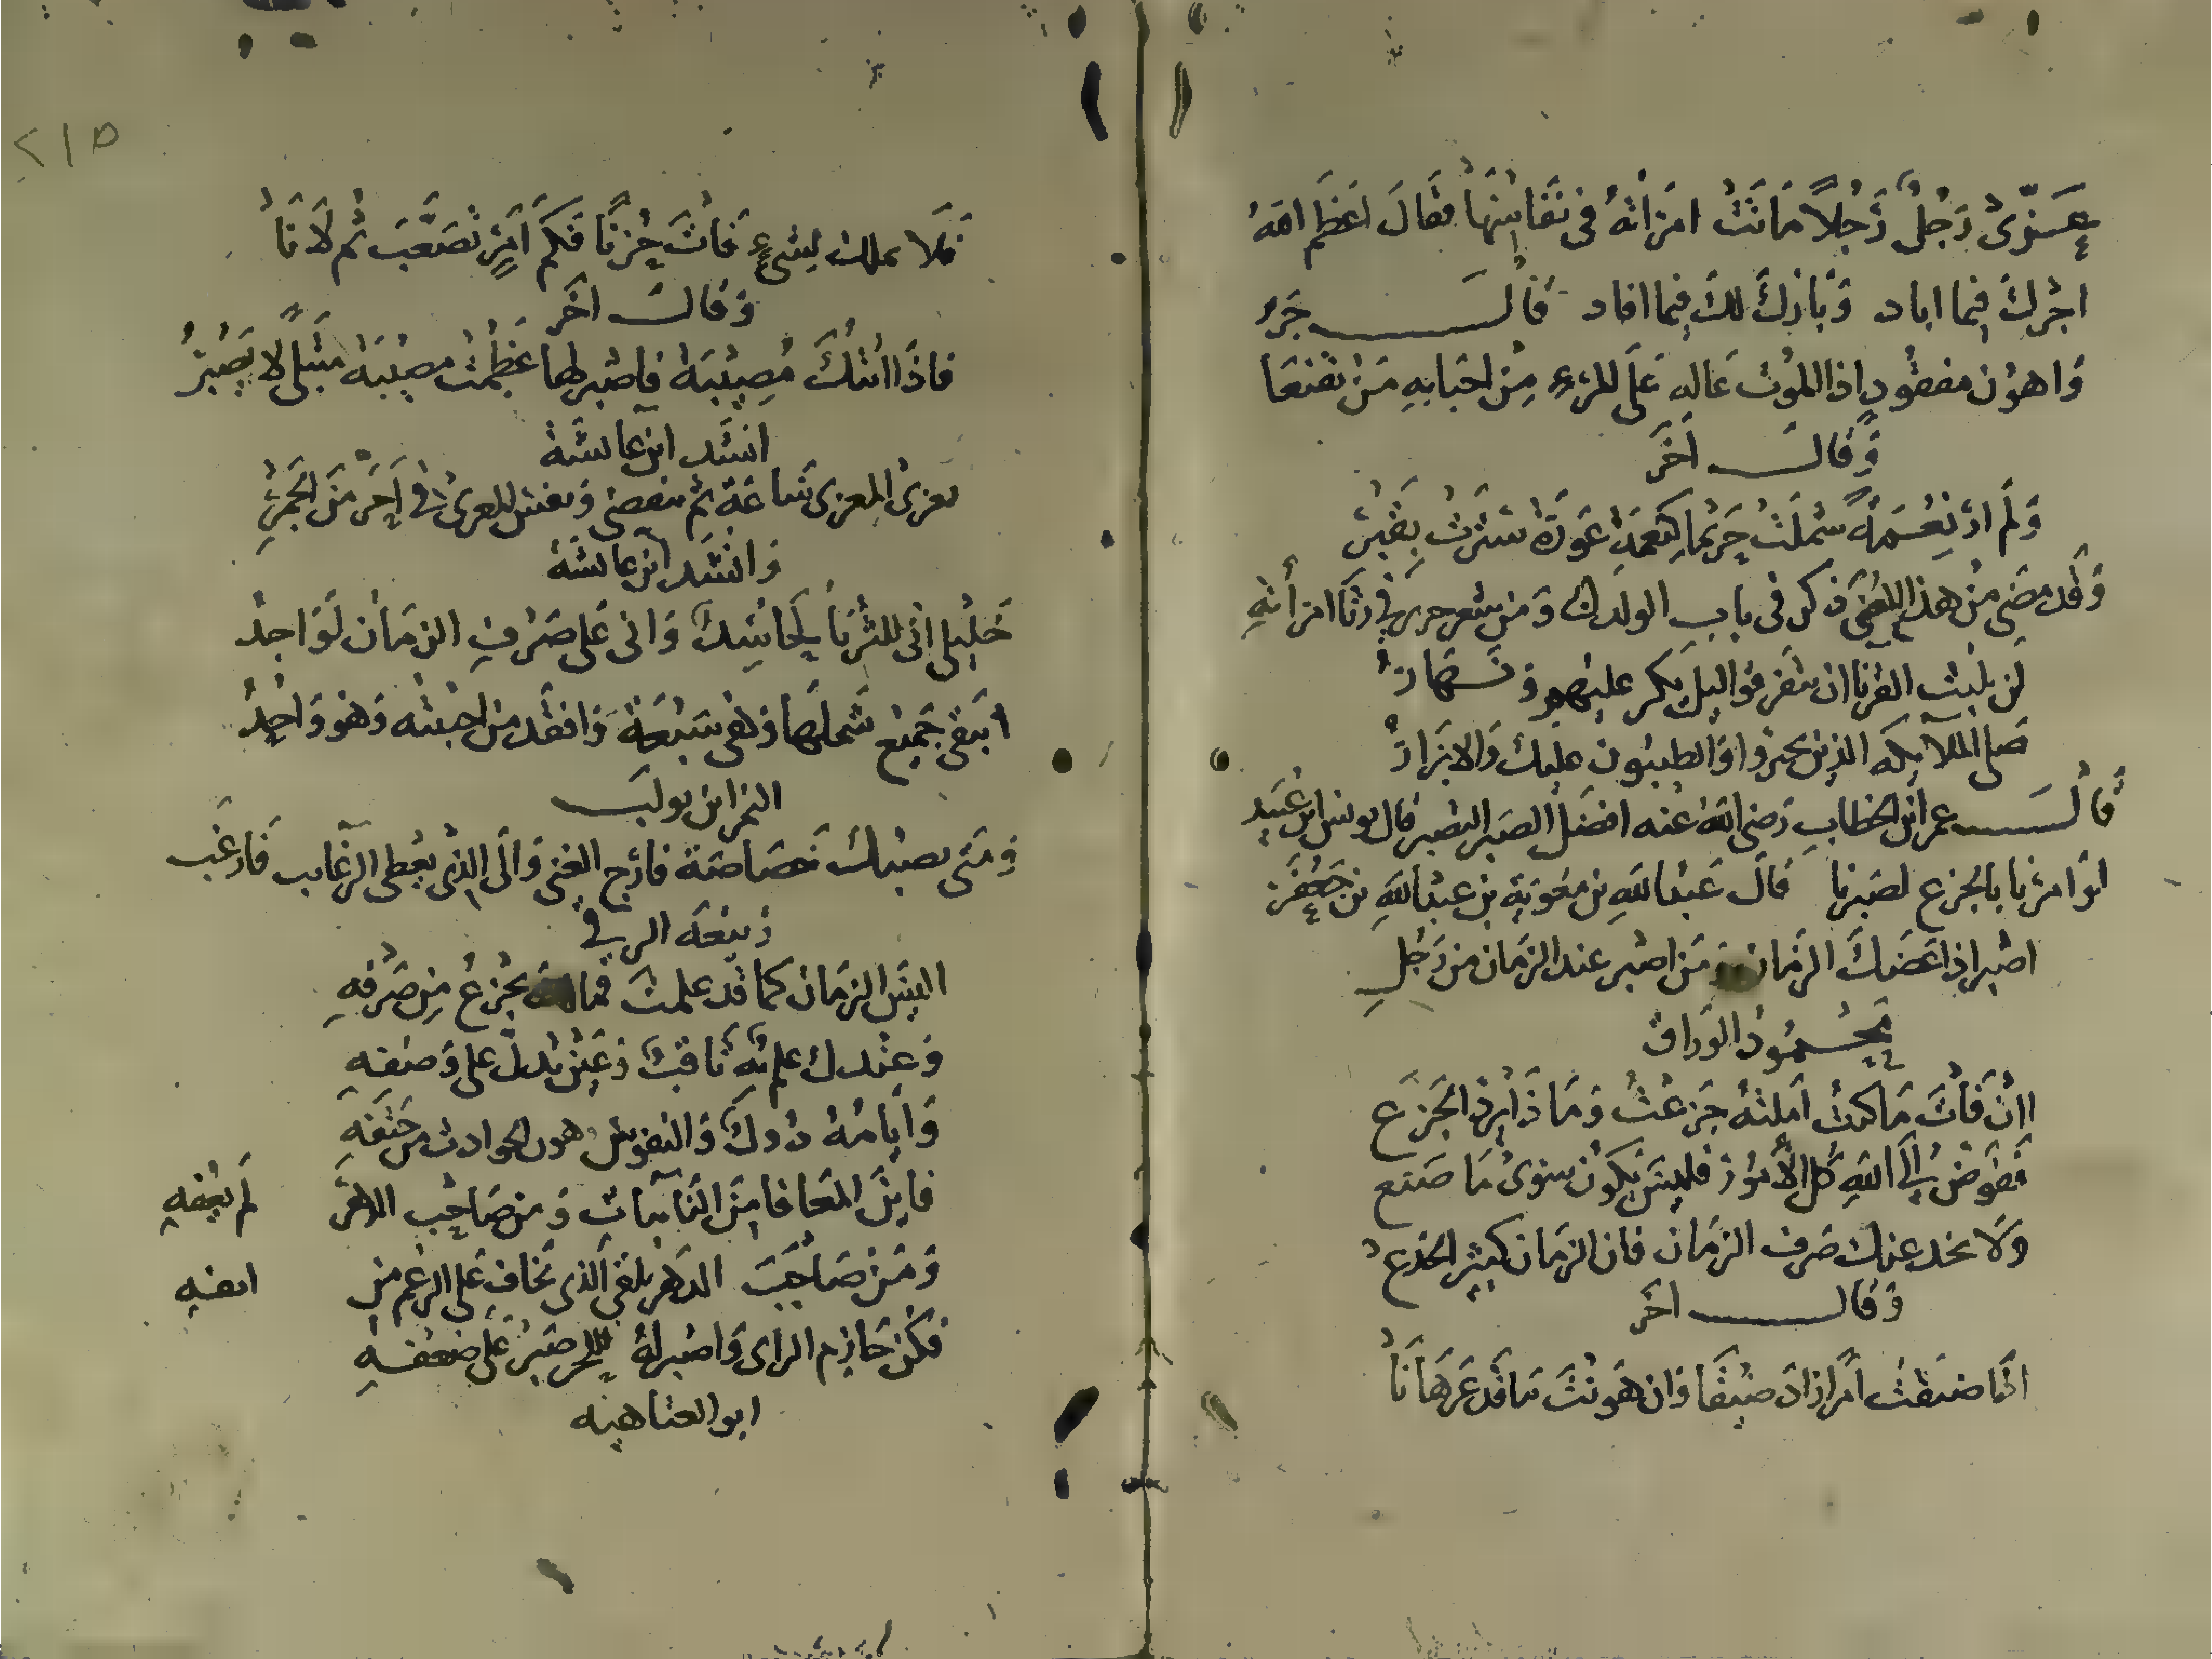 عَزّى رَجُلٌ رَجُلاً مَاتَتْ امرَاتهُ فى نفَاسِهَا فقَالَ اعَظَم الله
اجْرَكَ فيما اباد وَبَارَكَ لكَ فيما افاد قَالَ جَرير
وَاهوَن مفقُودٍ اذا الموْت غاله عَلَى المَرْءِ مِنْ احْبَابهِ مَنْ تقنعَا
وَقَالَ اخَر
وَلَم ارَ نِعْمَةً شملَتْ كريمًا كنعمَةِ عَورَةٍ سُترَتْ بقَبْرِ
وَقَد مضَى مِنْ هذا المعْنَى ذكر فى باب الولدان وَمن شعر جرير فى رثاء امرَأتهِ
لَن يلبث القرنا ان يتَفَرقوا ليل يكر عليهم وَنَهَارُ
صَلى الملايكة الذين تخيرُوا وَالطيبُون عليك وَالابْرَارُ
قَالَ عمر ابن الخطاب رَضى الله عنه افضَل الصَبر التصبر قال يونس ابن عُبَيد
لوْ امرْنا بالجزع لصَبرنا قالَ عَبد اللهِ بن معَويَة بن عبد اللهِ بن جَعْفَر
اصْبر اذا عَضكَ الزمَان وَمَن اصْبر عند الزمَان من رَجُلِ
محمُود الوَراق
اانْ فَاتَ مَا كنتَ امَلتهُ جَزعْتَ وَمَا ذَا يَرد الجَزَع
فَفَوضْ الَى اللهِ كل الأمُور فليسَ يكون سوَى مَا صَنع
وَلا يخدعنك صَرف الزمَان فان الزمَان كثير الخدع
وَقَالَ اخَر
اذا ضيقتَ امرًا زادَ ضيْقًا وَان هَونْتَ مَا قَد عَز هَانَا
فَلا تملك لِشىءٍ فَاتَ حزنًا فكَم امَرٍ تصَعَّبَ ثم لَانَا
وَقَالَ اخَر
فاذَا اتتْكَ مُصِيْبَة فاصْبر لها عَظمتْ مصيْبَة مبتَلًى لا يَصْبرُ
انشَد ابن عايشَة
يعزى المعزى سَاعَة ثم ينقضى وَيفنى المعزى فى احَر منَ الجَمْرِ
وَانشَد ابن عايشَة
خَليْلى انى للثرَيا لحَاسِدٌ وَانى عَلى صَرْفِ الزمَان لَوَاجدُ
ايَبقى جَميْع شَملهَا وَهى سَبْعَة وَافقد من احببته وَهو وَاحِدُ
النمر ابن تولب
وَمتَى تصبْك خَصَاصَة فارج الغنى وَالَى الذى يعْطى الرغَايب فَارغَب
رَبيْعَة الرقى
اليسَ الزمَان كما قد علمتَ فما لك تجزعُ مِن صَرْفهِ
وَعنْدك علم بهِ ثَاقبٌ وَعَين تدل على وَصفهِ
فاينَ المعَافا مِنَ النَايبَاتِ وَمن صَاحِب الدهر لم يعْفهِ
وَمَنْ صَاحَبَ الدَهر يلقى الذى يخَاف عَلى الرغم من انفهِ
فكن حَازم الراى وَاصْبر لهُ فللحر صَبرٌ عَلى ضعفهِ
ابو العتاهيه